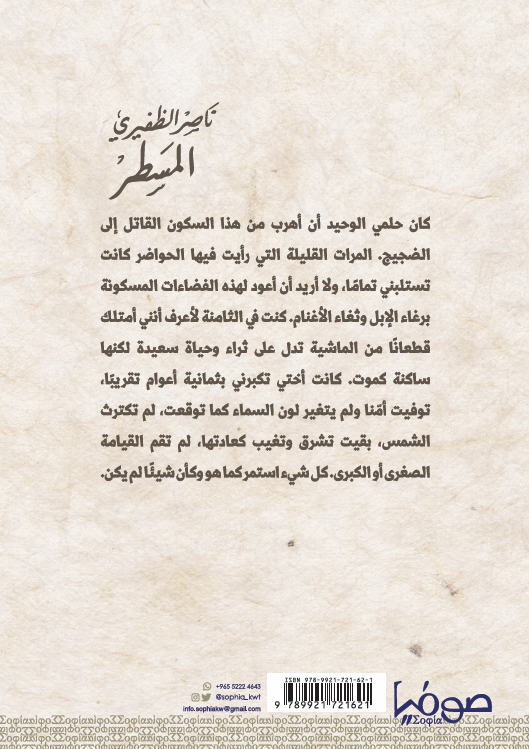 ناصر الظفيري
المسطر
كان حلمي الوحيد أن أهرب من هذا السكون القاتل إلى
الضجيج. المرات القليلة التي رأيت فيها الحواضر كانت
تستلبني تمامًا، ولا أريد أن أعود لهذه الفضاءات المسكونة
برغاء الإبل وثغاء الأغنام. كنت في الثامنة لأعرف أنني أمتلك
قطعانًا من الماشية تدل على ثراء وحياة سعيدة لكنها
ساكنة كموت. كانت أختي تكبرني بثمانية أعوام تقريبًا،
توفيت أمّنا ولم يتغير لون السماء كما توقعت، لم تكترث
الشمس، بقيت تشرق وتغيب كعادتها، لم تقم القيامة
الصغرى أو الكبرى. كل شيء استمر كما هو وكأن شيئًا لم يكن.
+965 5222 4643
@sophia_kwt
info.sophiakw@gmail.com
ISBN 978-9921-721-62-1
9 789921 721621
صوفيا
Σοφία